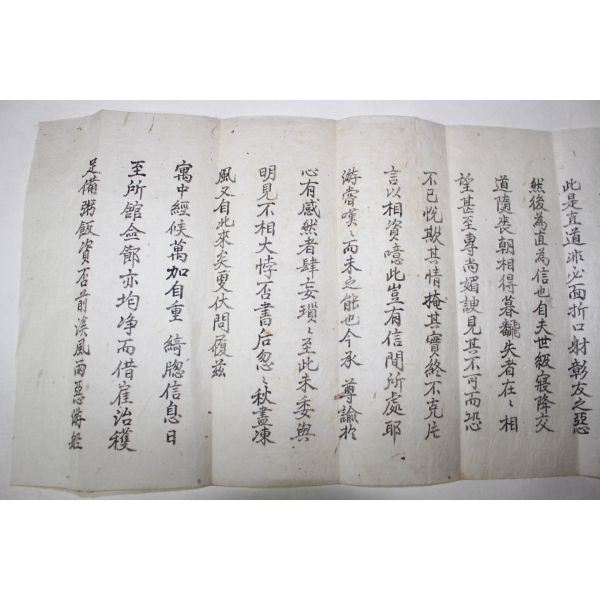 此是直道非必面折口射彰友之惡
然後為直為信也自夫世級寖降交
道隨喪朝相得暮齮失者在〻相
望甚至專尚媚諛見其不可而恐
不已悅欺其情掩其實終不克片
言以相資噫此豈有信聞所處耶
游嘗嘆〻而未之能也今承 尊諭於
心有感然者肆妄瑣〻至此未委與
明見不相大悖否書后忽〻秋盡凍
風又自此來矣更伏問履茲
寓中經候萬加自重 綺牕信息日
至所館僉節亦均淨而借崔治穫
足備粥飯資否前溪風雨惡游